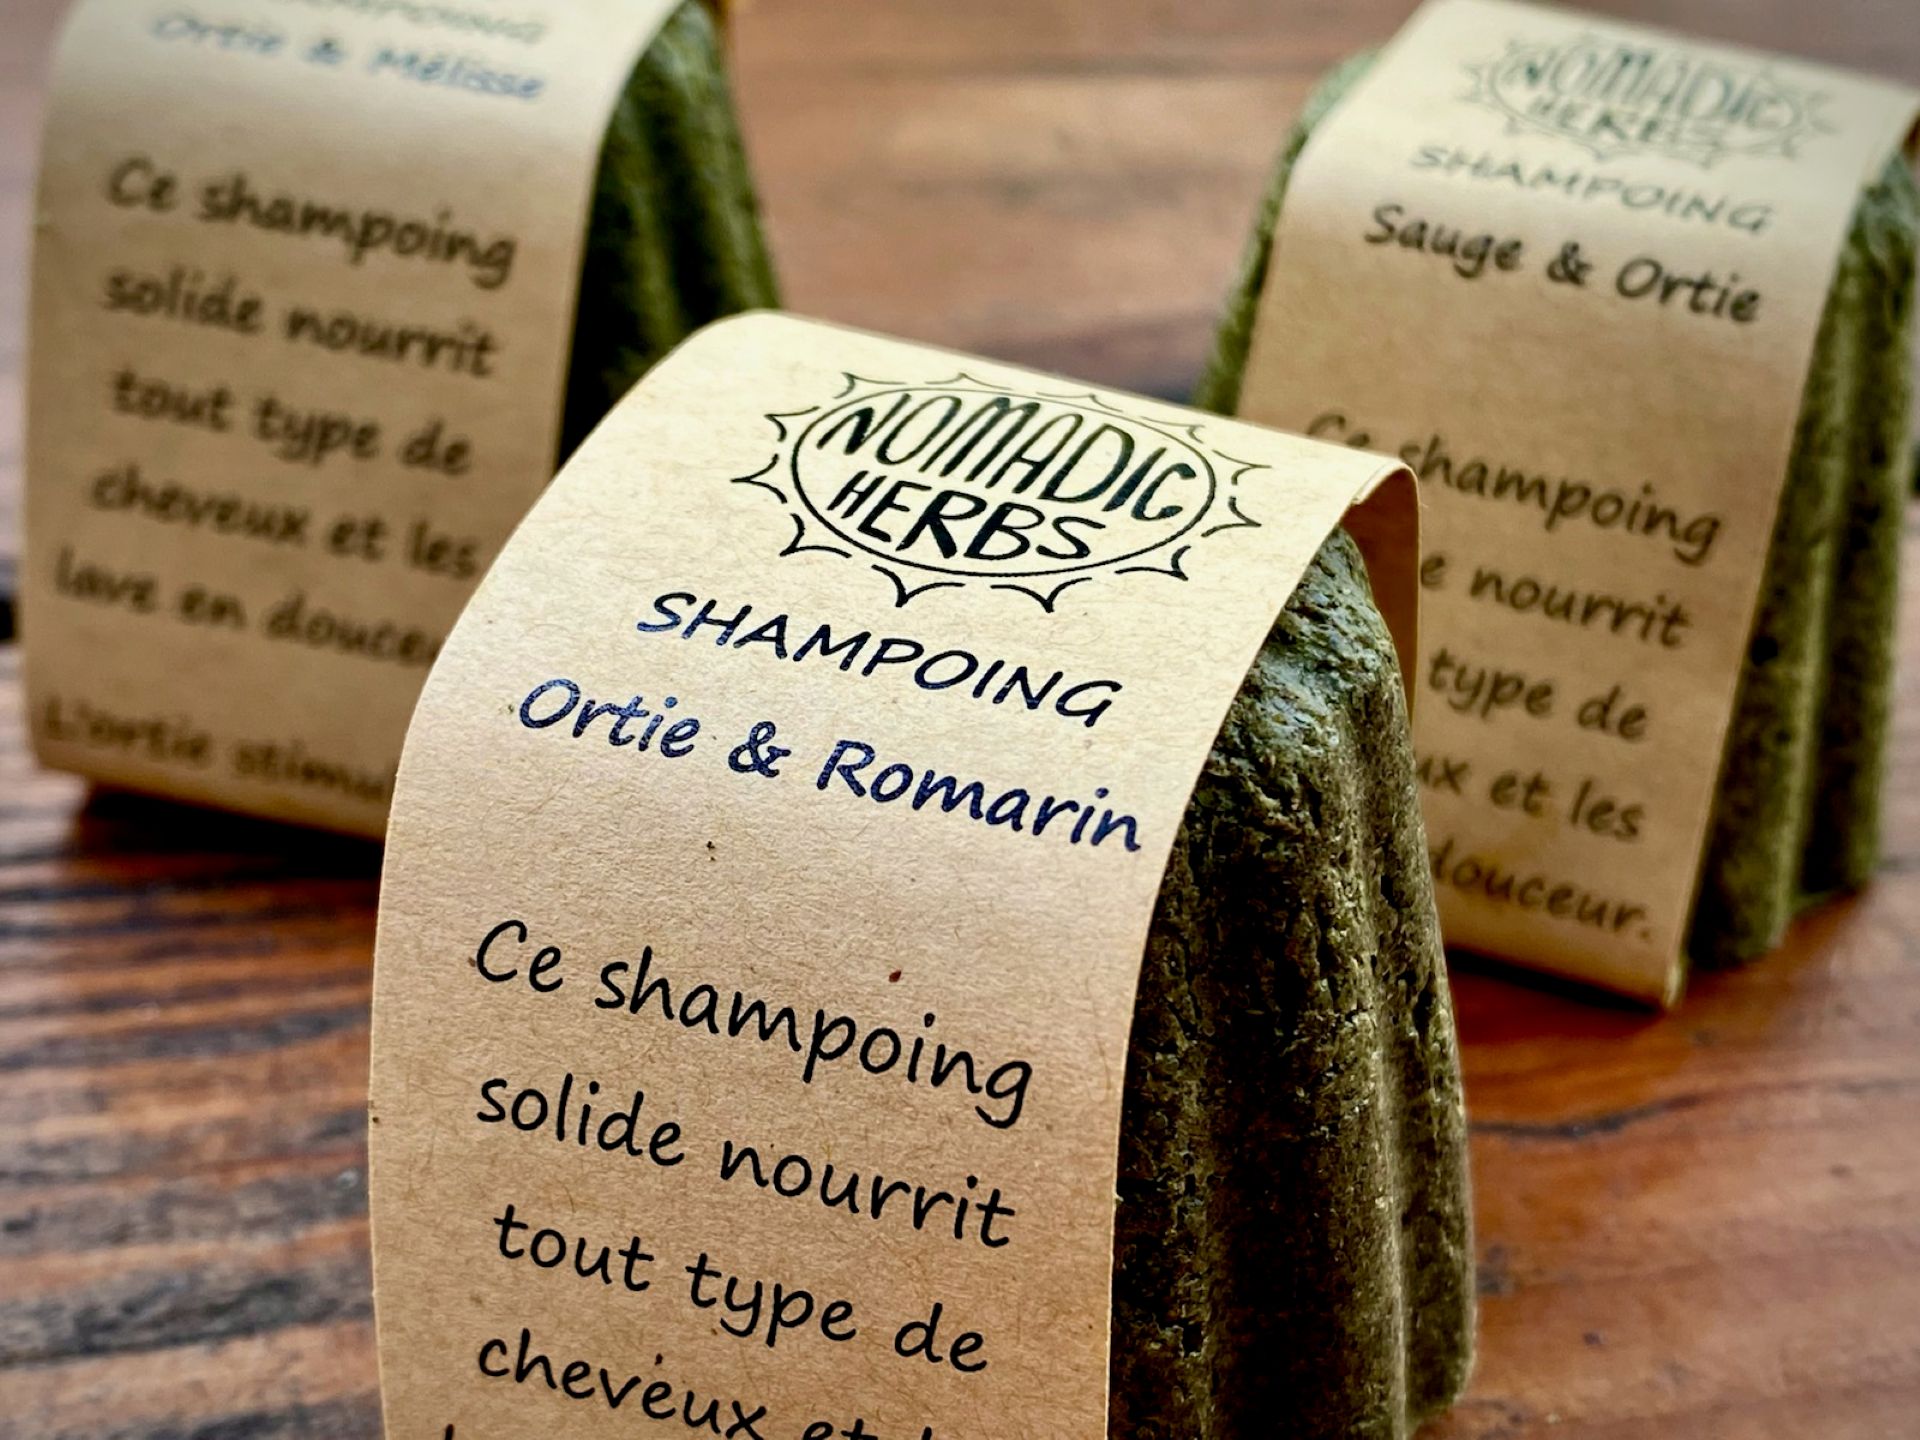 SHAMPOING
Ortie & Mélisse
Ce shampoing
solide nourrit
tout type de
cheveux et les
lave en
L'ortie
NOMADIC
HERBS
SHAMPOING
Ortie & Romarin
Ce shampoing
solide nourrit
tout type de
cheveux et
NOMADIC
HERBS
SHAMPOING
Sauge & Ortie
Ce shampoing
nourrit
type de
et les
douceur.